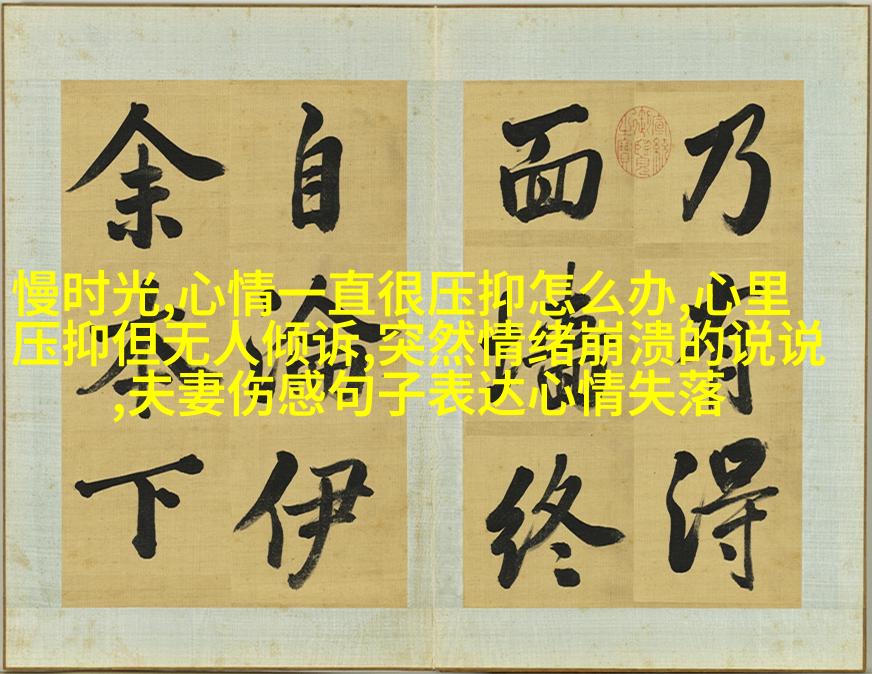 慢时光,心情一直很压抑怎么办,心里
压抑但无人倾诉,突然情绪崩溃的说说
,夫妻伤感句子表达心情失落
乃有得
面終
自淪伊
余下